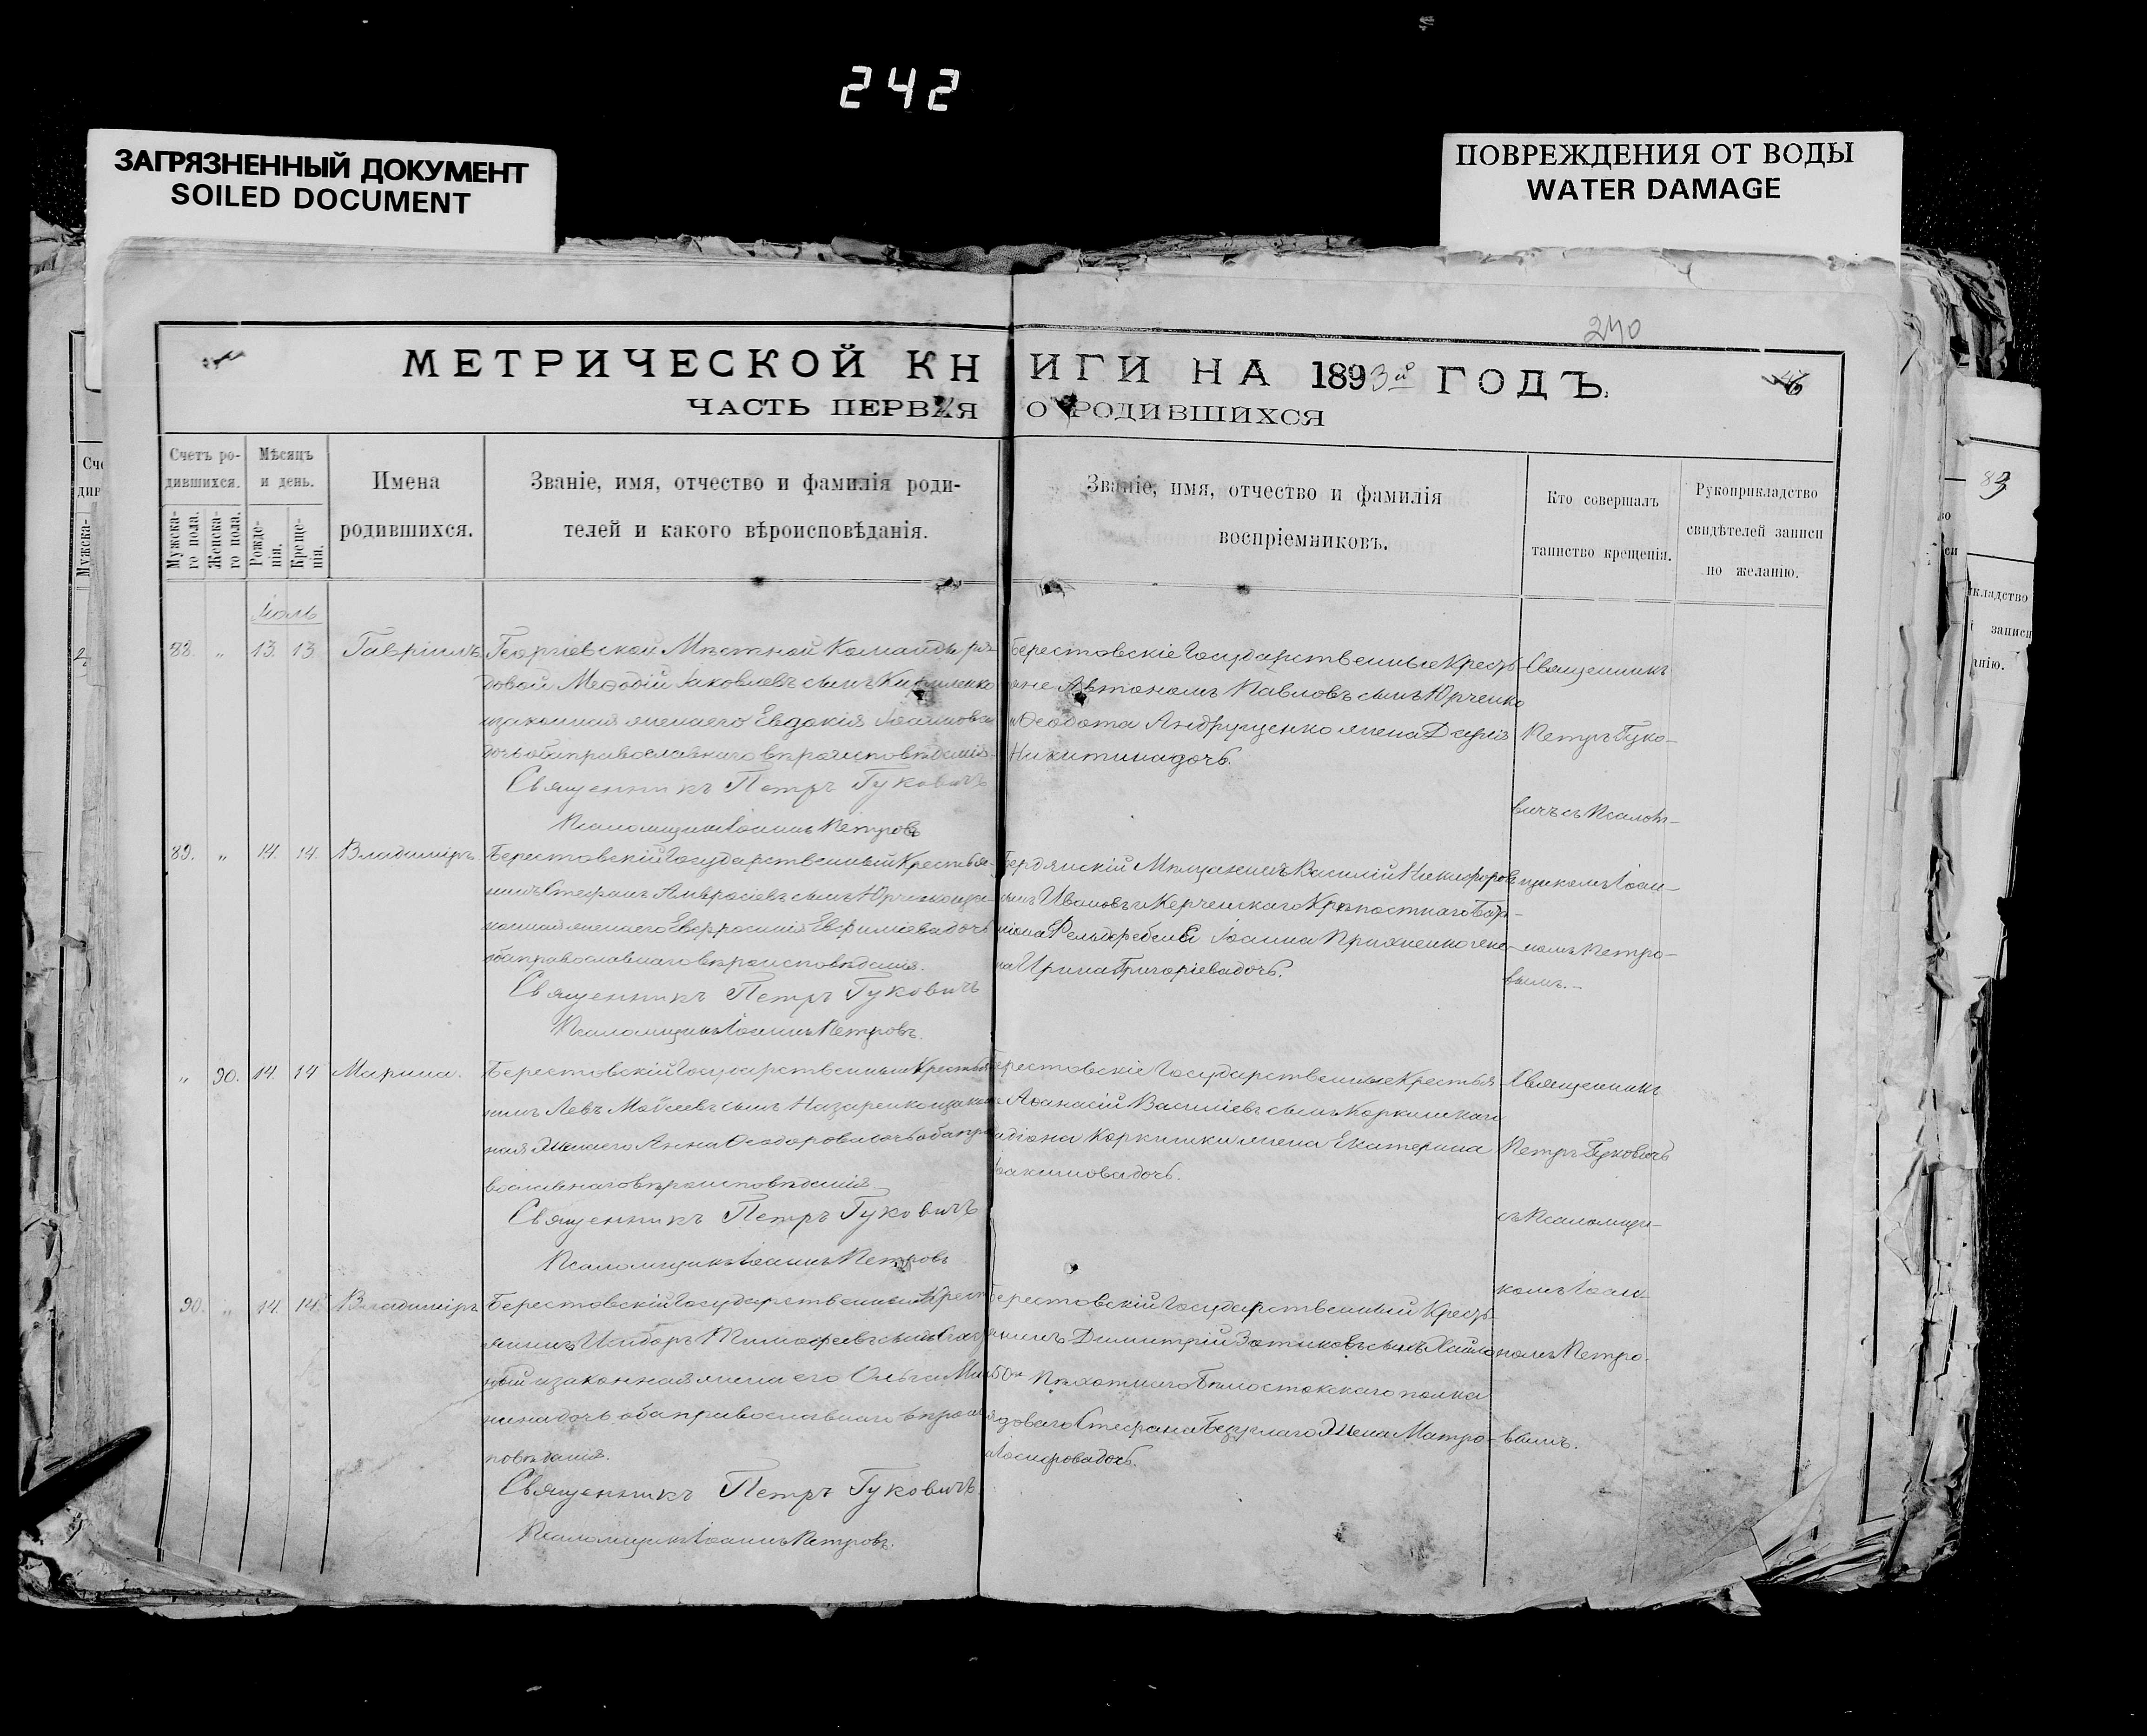 242
ЗАГРЯЗНЕННЫЙ ДОКУМЕНТ
SOILED DOCUMENT
ПОВРЕЖДЕНИЯ ОТ ВОДЫ
WATER DAMAGE
240
МЕТРИЧЕСКОЙ КНИГИ НА 1893й ГОДЪ.
ЧАСТЬ ПЕРВАЯ О РОДИВШИХСЯ
Счетъ ро-
дившихся.
Мужска-
го пола.
Женска-
го пола.
Мѣсяцъ
и день.
Рожде-
нія.
Креще-
нія.
Имена
родившихся.
Званіе, имя, отчество и фамилія роди-
телей и какого вѣроисповѣданія.
Званіе, имя, отчество и фамилія
воспріемниковъ.
Кто совершалъ
таинство крещенія.
Рукоприкладство
свидѣтелей записи
по желанію.
Іюль
88. „ 13. 13. Гавріилъ.
Георгіевской Мѣстной Команды ря-
довой Меѳодій Іаковлевъ сынъ
и законная жена его Евдокія Іоаннова
дочь оба православнаго вѣроисповѣданія.
Священникъ Петръ Гуковичъ
Псаломщикъ Іоаннъ Петровъ
Берестовскіе Государственные Кресть-
яне Автономъ Павловъ сынъ Юрченко
и Ѳеодота Андрущенко жена Дарія
Никитина дочь.
Священникъ
Петръ Гуко-
вичъ съ Псалом-
щикомъ Іоан-
номъ Петро-
вымъ.-
89. „ 14. 14. Владиміръ.
Берестовскій Государственный Крестья-
нинъ Стефанъ Амвросіевъ сынъ Юрченко и за-
конная жена его Евфросинія Евфиміева дочь
оба православнаго вѣроисповѣданія.
Священникъ Петръ Гуковичъ
Псаломщикъ Іоаннъ Петровъ.
Бердянскій Мѣщанинъ Василій Никифоровъ
сынъ Ивановъ и Керченскаго Крѣпостнаго Бат-
Іоанна жена
Ирина Григоріева дочь.
„ 90. 14. 14 Марина.
Берестовскій Государственный Крестья-
нинъ Левъ Моѵсеевъ сынъ Назаренко и закон-
ная Жена его Анна Ѳеодорова дочь оба пра-
вославнаго вѣроисповѣданія
Священникъ Петръ Гуковичъ
Псаломщикъ Іоаннъ Петровъ
Берестовскіе Государственные Крестья-
не Аѳанасій Василіевъ сынъ
жена Екатерина
Іоакимова дочь.
Священникъ
Петръ Гуковичъ
съ Псаломщи-
комъ Іоан-
номъ Петро-
вымъ.
90. „ 14. 14. Владиміръ
Берестовскій Государственный Крест-
янинъ Исидоръ Тимофеевъ сынъ
и законная жена его Ольга
дочь оба православнаго вѣроис-
повѣданія.
Священникъ Петръ Гуковичъ
Псаломщикъ Іоаннъ Петровъ.
Берестовскій Государственный Кресть-
янинъ Димитрій Зотиковъ сынъ
Пѣхотнаго Бѣлостокскаго полка
рядоваго Стефана Безуглаго Жена Матро-
на Іосифова дочь.